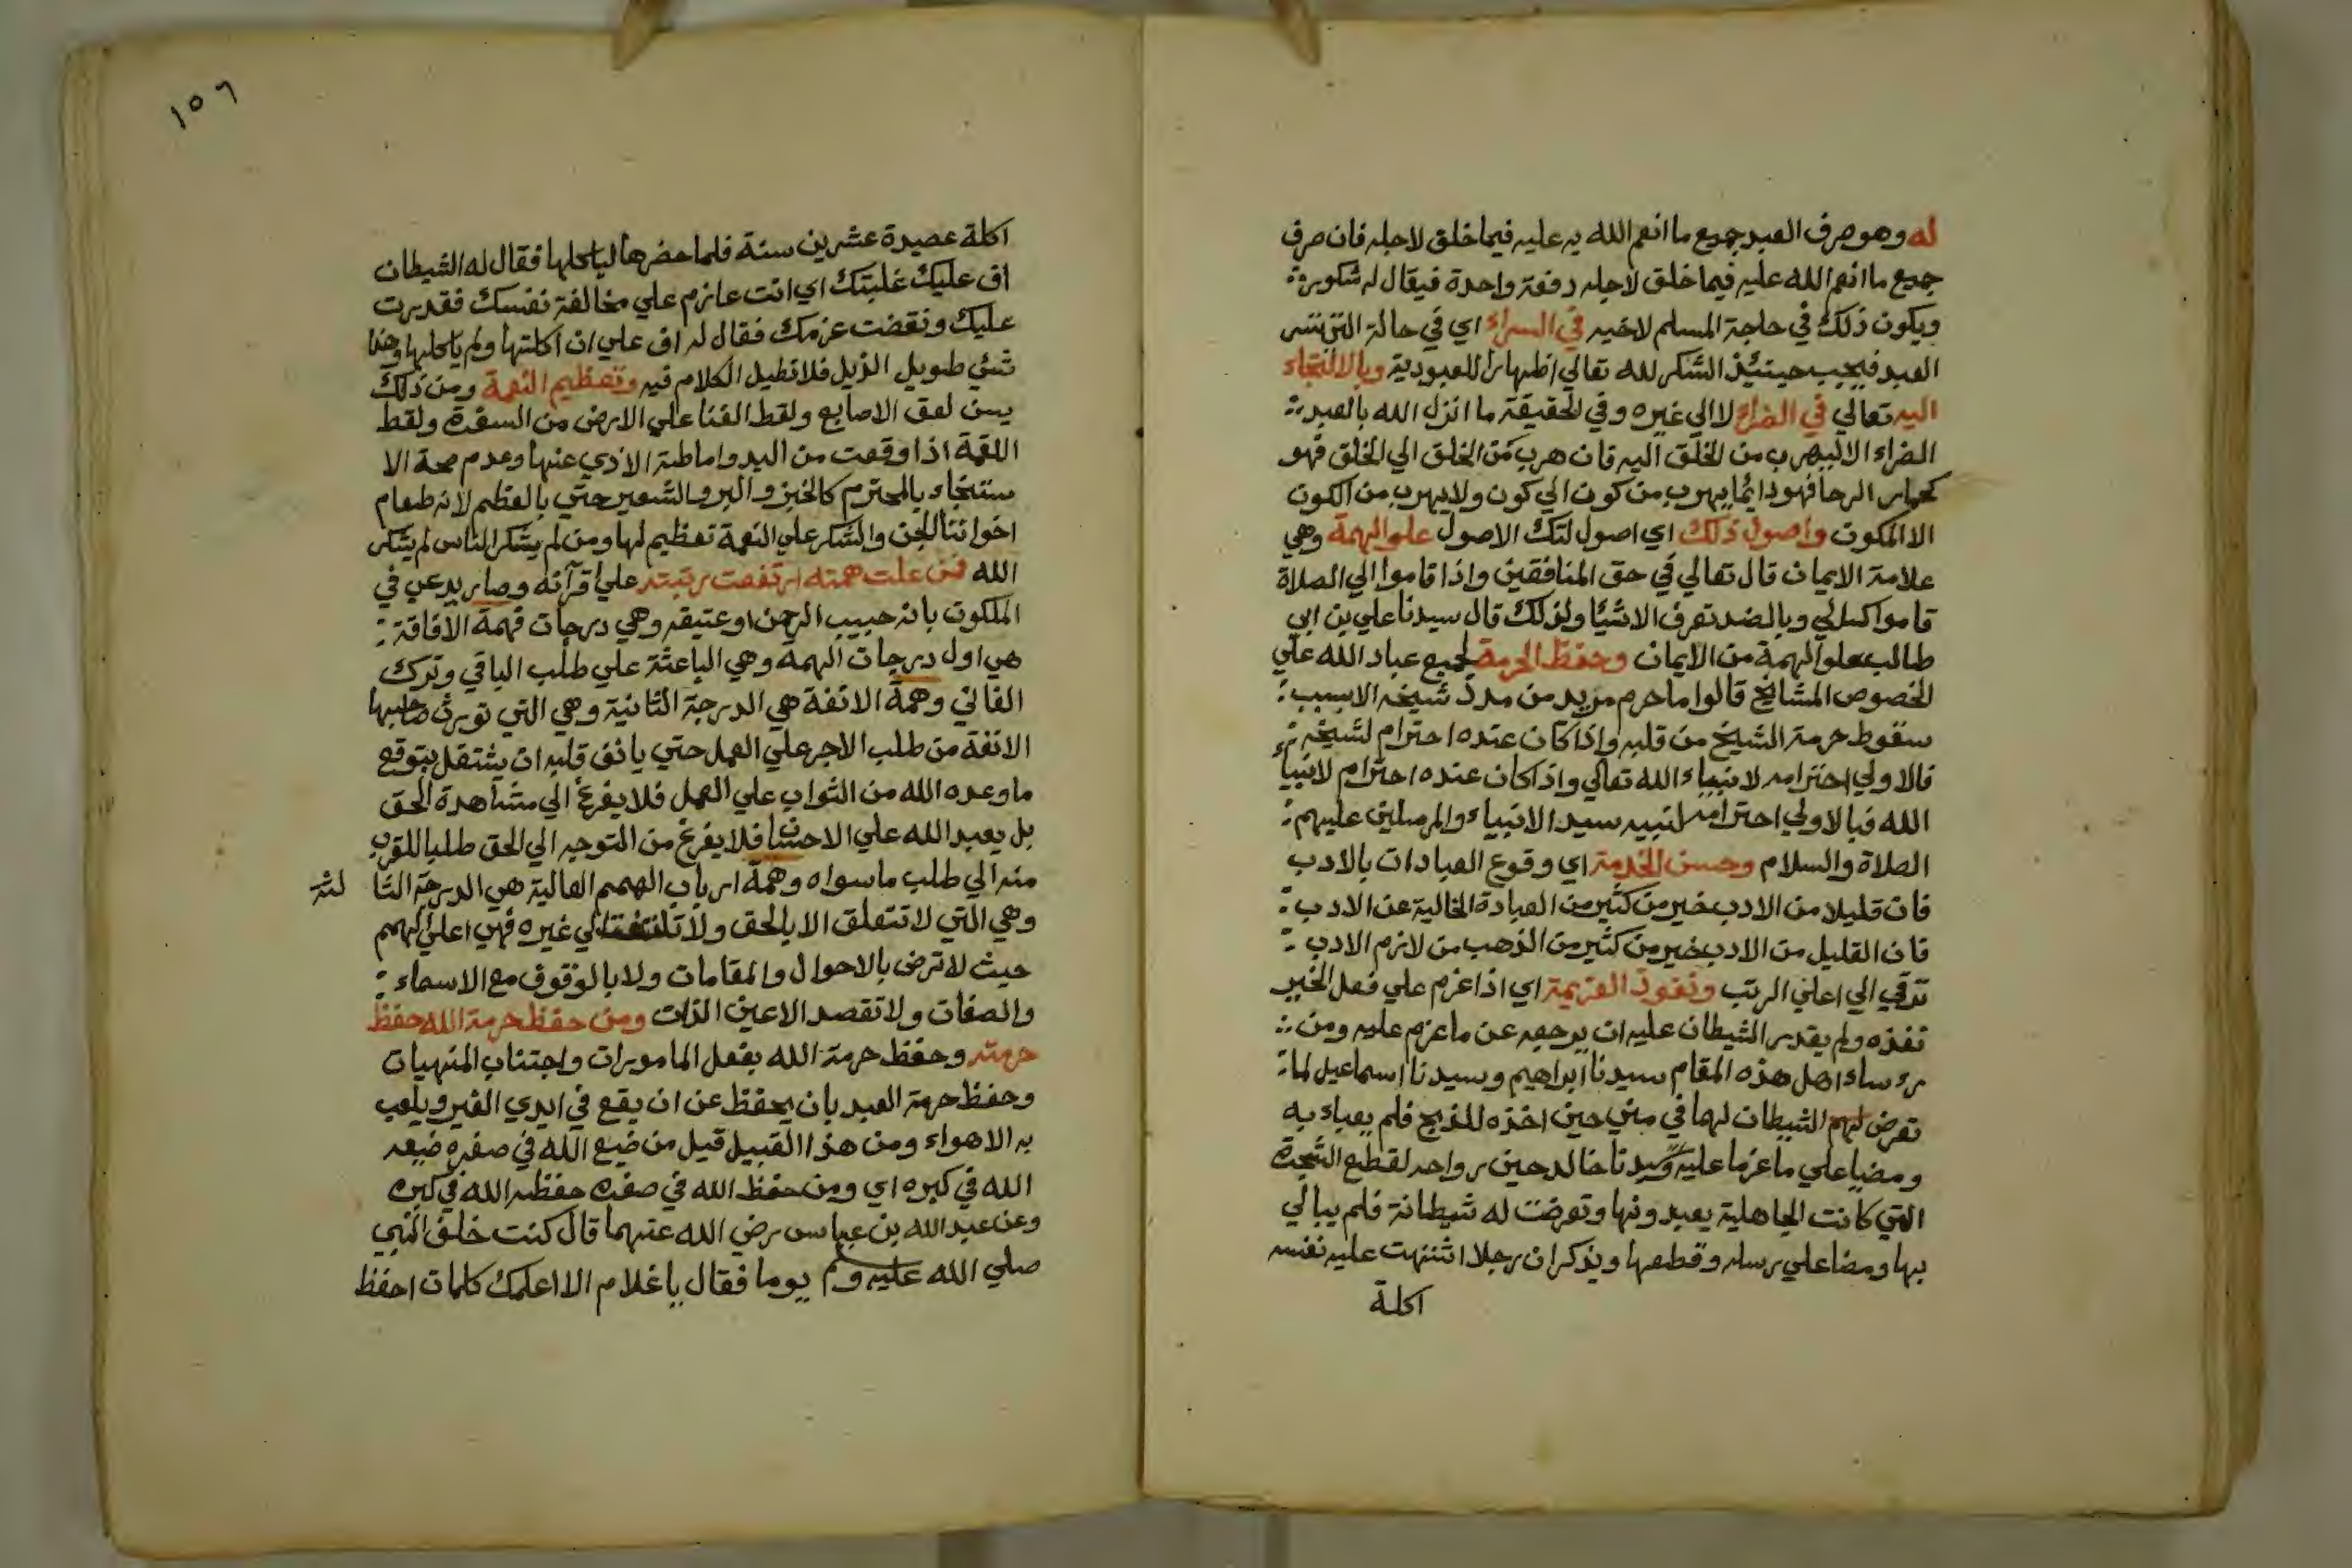 له وهو صرف العبد جميع ما انعم الله به عليه فيما خلق لاجله فان صرف
جميع ما انعم الله عليه فيما خلق لاجله دفعة واحدة فيقال له شكور
ويكون ذلك في حاجة المسلم لاخيه في السراء اي في حالة التي تسر
العبد فيجب حينئذ الشكر لله تعالي اظهارا للعبودية وبالالتجاء
اليه تعالي في الضراء لا الي غيره وفي الحقيقة ما انزل الله بالعبد
الضراء الا ليهرب من الخلق اليه فان هرب من الخلق الي الخلق فهو
كحمار الرحا فهو دائما يهرب من كون الي كون ولا يهرب من الكون
الا المكون واصول ذلك اي اصول لتك الاصول علو الهمة وهي
علامة الايمان قال تعالي في حق المنافقين واذا قاموا الي الصلاة
قاموا كسالي وبالضد تعرف الاشيا ولذلك قال سيدنا علي بن ابي
طالب علو الهمة من الايمان وحفظ الحرمة لجميع عباد الله علي
الخصوص المشايخ قالوا ما حرم مريد من مدد شيخه الا بسبب
سقوط حرمة الشيخ من قلبه واذا كان عنده احترام لشيخه
فالاولي احترامه لانبياء الله تعالي واذا كان عنده احترام لانبياء
الله فبالاولي احترامه لنبيه سيد الانبياء والمرسلين عليهم
الصلاة والسلام وحسن الخدمة اي وقوع العبادات بالادب
فان قليلا من الادب خير من كثير من العبادة الخالية عن الادب
فان القليل من الادب خير من كثير من الذهب من لازم الادب
ترقي الي اعلي الرتب ونفوذ العزيمة اي اذا عزم علي فعل الخير
نفذه ولم يقدر الشيطان عليه ان يرجعه عن ما عزم عليه ومن
رءساء اهل هذه المقام سيدنا ابراهيم وسيدنا اسماعيل لما
تعرض لهم الشيطان لهما في مني حين اخذه للذبح فلم يعباء به
ومضيا علي ما عزما عليه وسيدنا خالد حين رواحه لقطع الشجرة
التي كانت الجاهلية يعبدونها وتعرضت له شيطانة فلم يبالي
بها ومضا علي رسله وقطعها ويذكر ان رجلا اشتهت عليه نفسه
اكلة
١٥٦
اكلة عصيدة عشرين سنة فلما حضرها لياكلها فقال له الشيطان
اف عليك غلبتك اي انت عازم علي مخالفة نفسك فقدرت
عليك ونقضت عزمك فقال له اف علي ان اكلتها ولم ياكلها وهذا
شئ طويل الذيل فلا نطيل الكلام فيه وتعظيم النعمة ومن ذلك
يسن لعق الاصابع ولقط الفتا علي الارض من السفرة ولقط
اللقمة اذا وقعت من اليد واماطة الاذي عنها وعدم صحة الا
ستنجاء بالمحترم كالخبز والبر والشعير حتي بالعظم لانه طعام
اخواننا الجن والشكر علي النعمة تعظيم لها ومن لم يشكر الناس لم يشكر
الله فمن علت همته ارتفعت رتبته علي اقرآنه وصار يدعي في
الملكون بانه حبيب الرحمن او عتيقه وهي درجات فهمة الافاقة
هي اول درجات الهمة وهي الباعثة علي طلب الباقي وترك
الفاني وهمة الانفة هي الدرجة الثانية وهي التي تورث صاحبها
الانفة من طلب الاجر علي العمل حتي يانف قلبه ان يشتغل بتوقع
ما وعده الله من الثواب علي العمل فلا يفرغ الي مشاهدة الحق
بل يعبد الله علي الاحسان فلا يفرغ من التوجه الي الحق طلبا للقرب
منه الي طلب ما سواه وهمة ارباب الهمم العالية هي الدرجة الثا لثة
وهي التي لا تتعلق الا بالحق ولا تلتفت الي غيره فهي اعلي الهمم
حيث لا ترضي بالاحوال والمقامات ولا بالوقوف مع الاسماء
والصفات ولا تقصد الا عين الذات ومن حفظ حرمة الله حفظ
حرمته وحفظ حرمة الله بفعل المامورات واجتناب المنهيات
وحفظ حرمة العبد بان يحفظ عن ان يقع في ايدي الغير ويلعب
به الاهواء ومن هذا القبيل قيل من ضيع الله في صغره ضيعه
الله في كبره اي ومن حفظ الله في صغره حفظه الله في كبره
وعن عبد الله بن عباس رضي الله عنهما قال كنت خلف النبي
صلي الله عليه وم يوما فقال يا غلام الا اعلمك كلمات احفظ